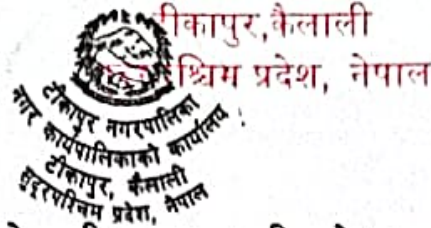 टीकापुर,कैलाली
श्चिम प्रदेश, नेपाल
टीकापुर नगरपालिका
नगर कार्यपालिकाको कार्यालय
टीकापुर, कैलाली
सुदूरपश्चिम प्रदेश, नेपाल